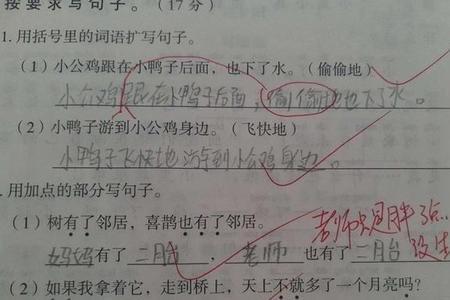 按要求写句子。（17分）
1. 用括号里的词语扩写句子。
（1）小公鸡跟在小鸭子后面，也下了水。（偷偷地）
小公鸡跟在小鸭子后面，偷偷地也下了水。
（2）小鸭子游到小公鸡身边。（飞快地）
小鸭子飞快地游到小公鸡身边。
. 用加点的部分写句子。
（1）树有了邻居，喜鹊也有了邻居。
老师只是胖了点
妈妈有了二胎，老师也有了二月台
没生
（2）如果我拿着它，走到桥上，天上不就多了一个月亮吗？